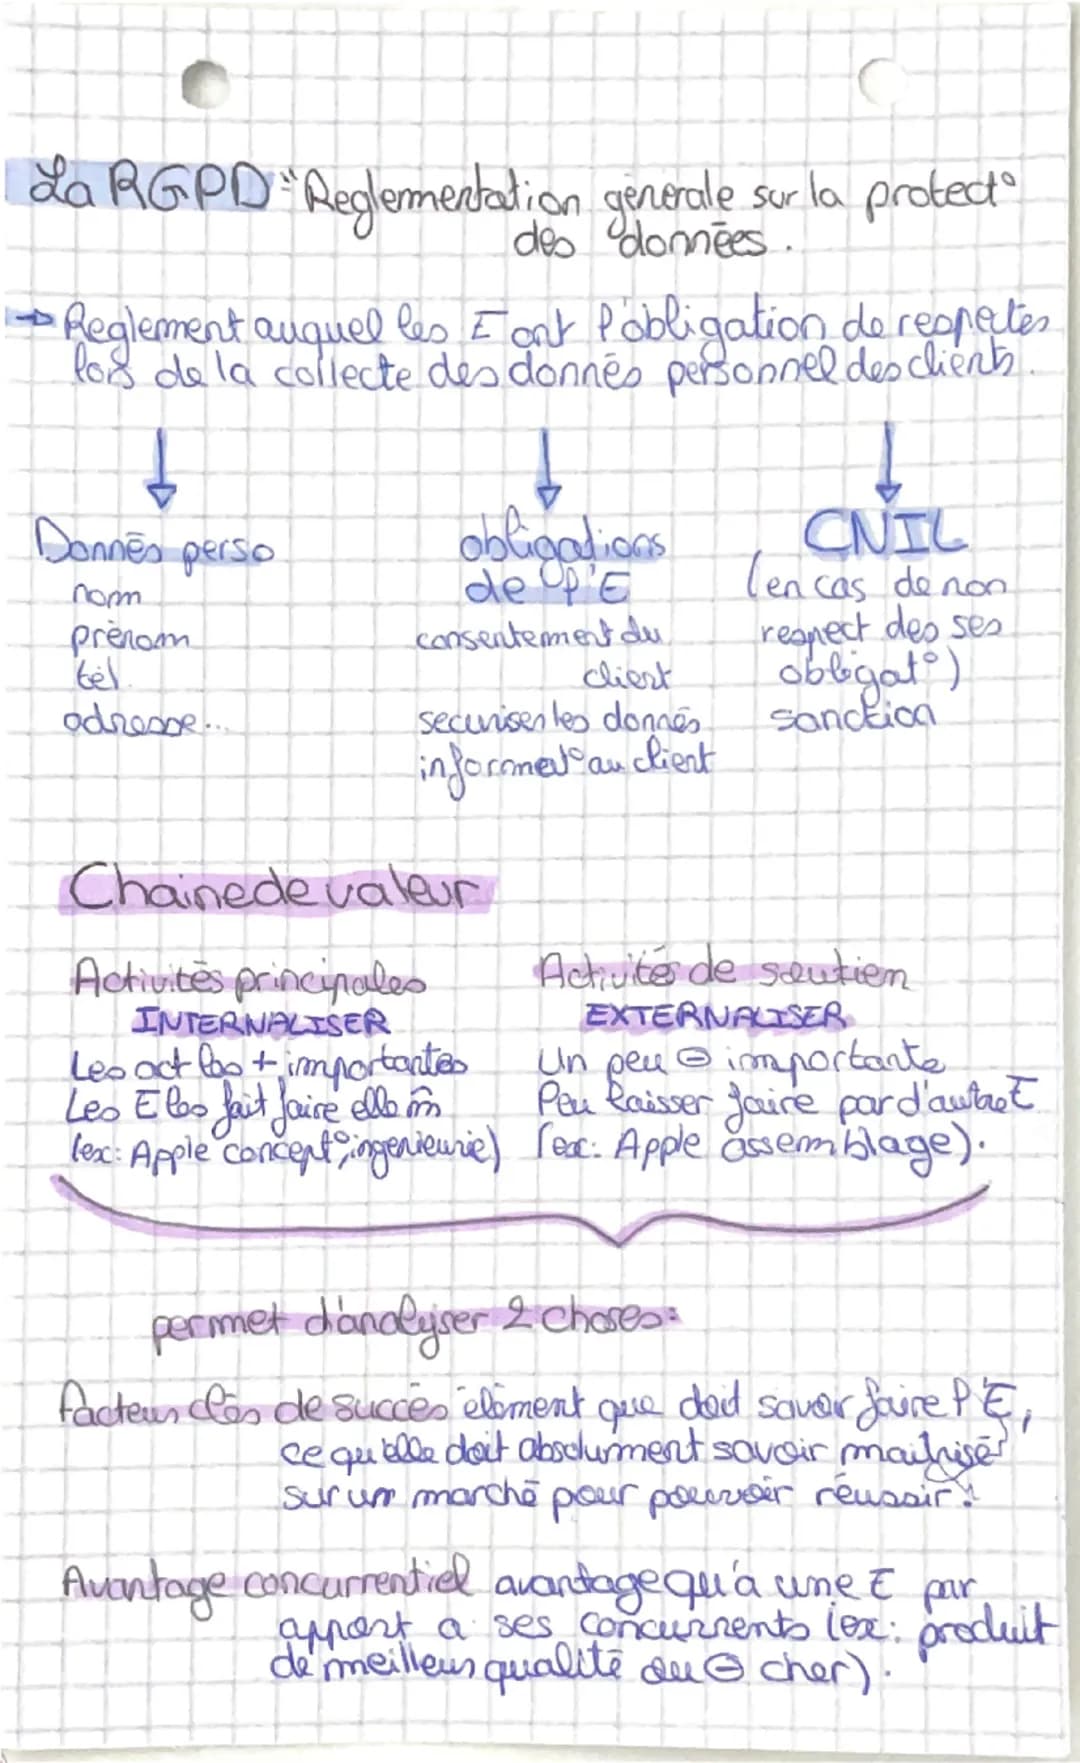 La RGPD "Reglementation génerale sur la protect°
des données.
→ Reglement auquel les E ont l'obligation de respecter
lors de la collecte des donnés personnel des clients.
Donnés perso
nom
prénom
tél.
adresse...
obligations
de l'E
consentement du
client
securiser les donnés
informat° au client
CNIL
(en cas de non
respect des ses
obligat°)
sanction
Chaine de valeur
Activités principales
INTERNALISER
Les act les + importantes
Les E les fait faire elle m̂
(ex: Apple concept°, ingenieurie)
Activités de soutien
EXTERNALISER
Un peu ⊖ importante
Peu laisser faire par d'autre E
(ex: Apple assemblage).
permet d'analyser 2 choses:
facteurs clés de succès élément que doit savoir faire l'E,
ce qu'elle doit absolument savoir maitrisér
sur un marché pour pouvoir réussir.
Avantage concurrentiel avantage qu'a une E par
apport a ses concurrents (ex: produit
de meilleurs qualité ou ⊖ cher).